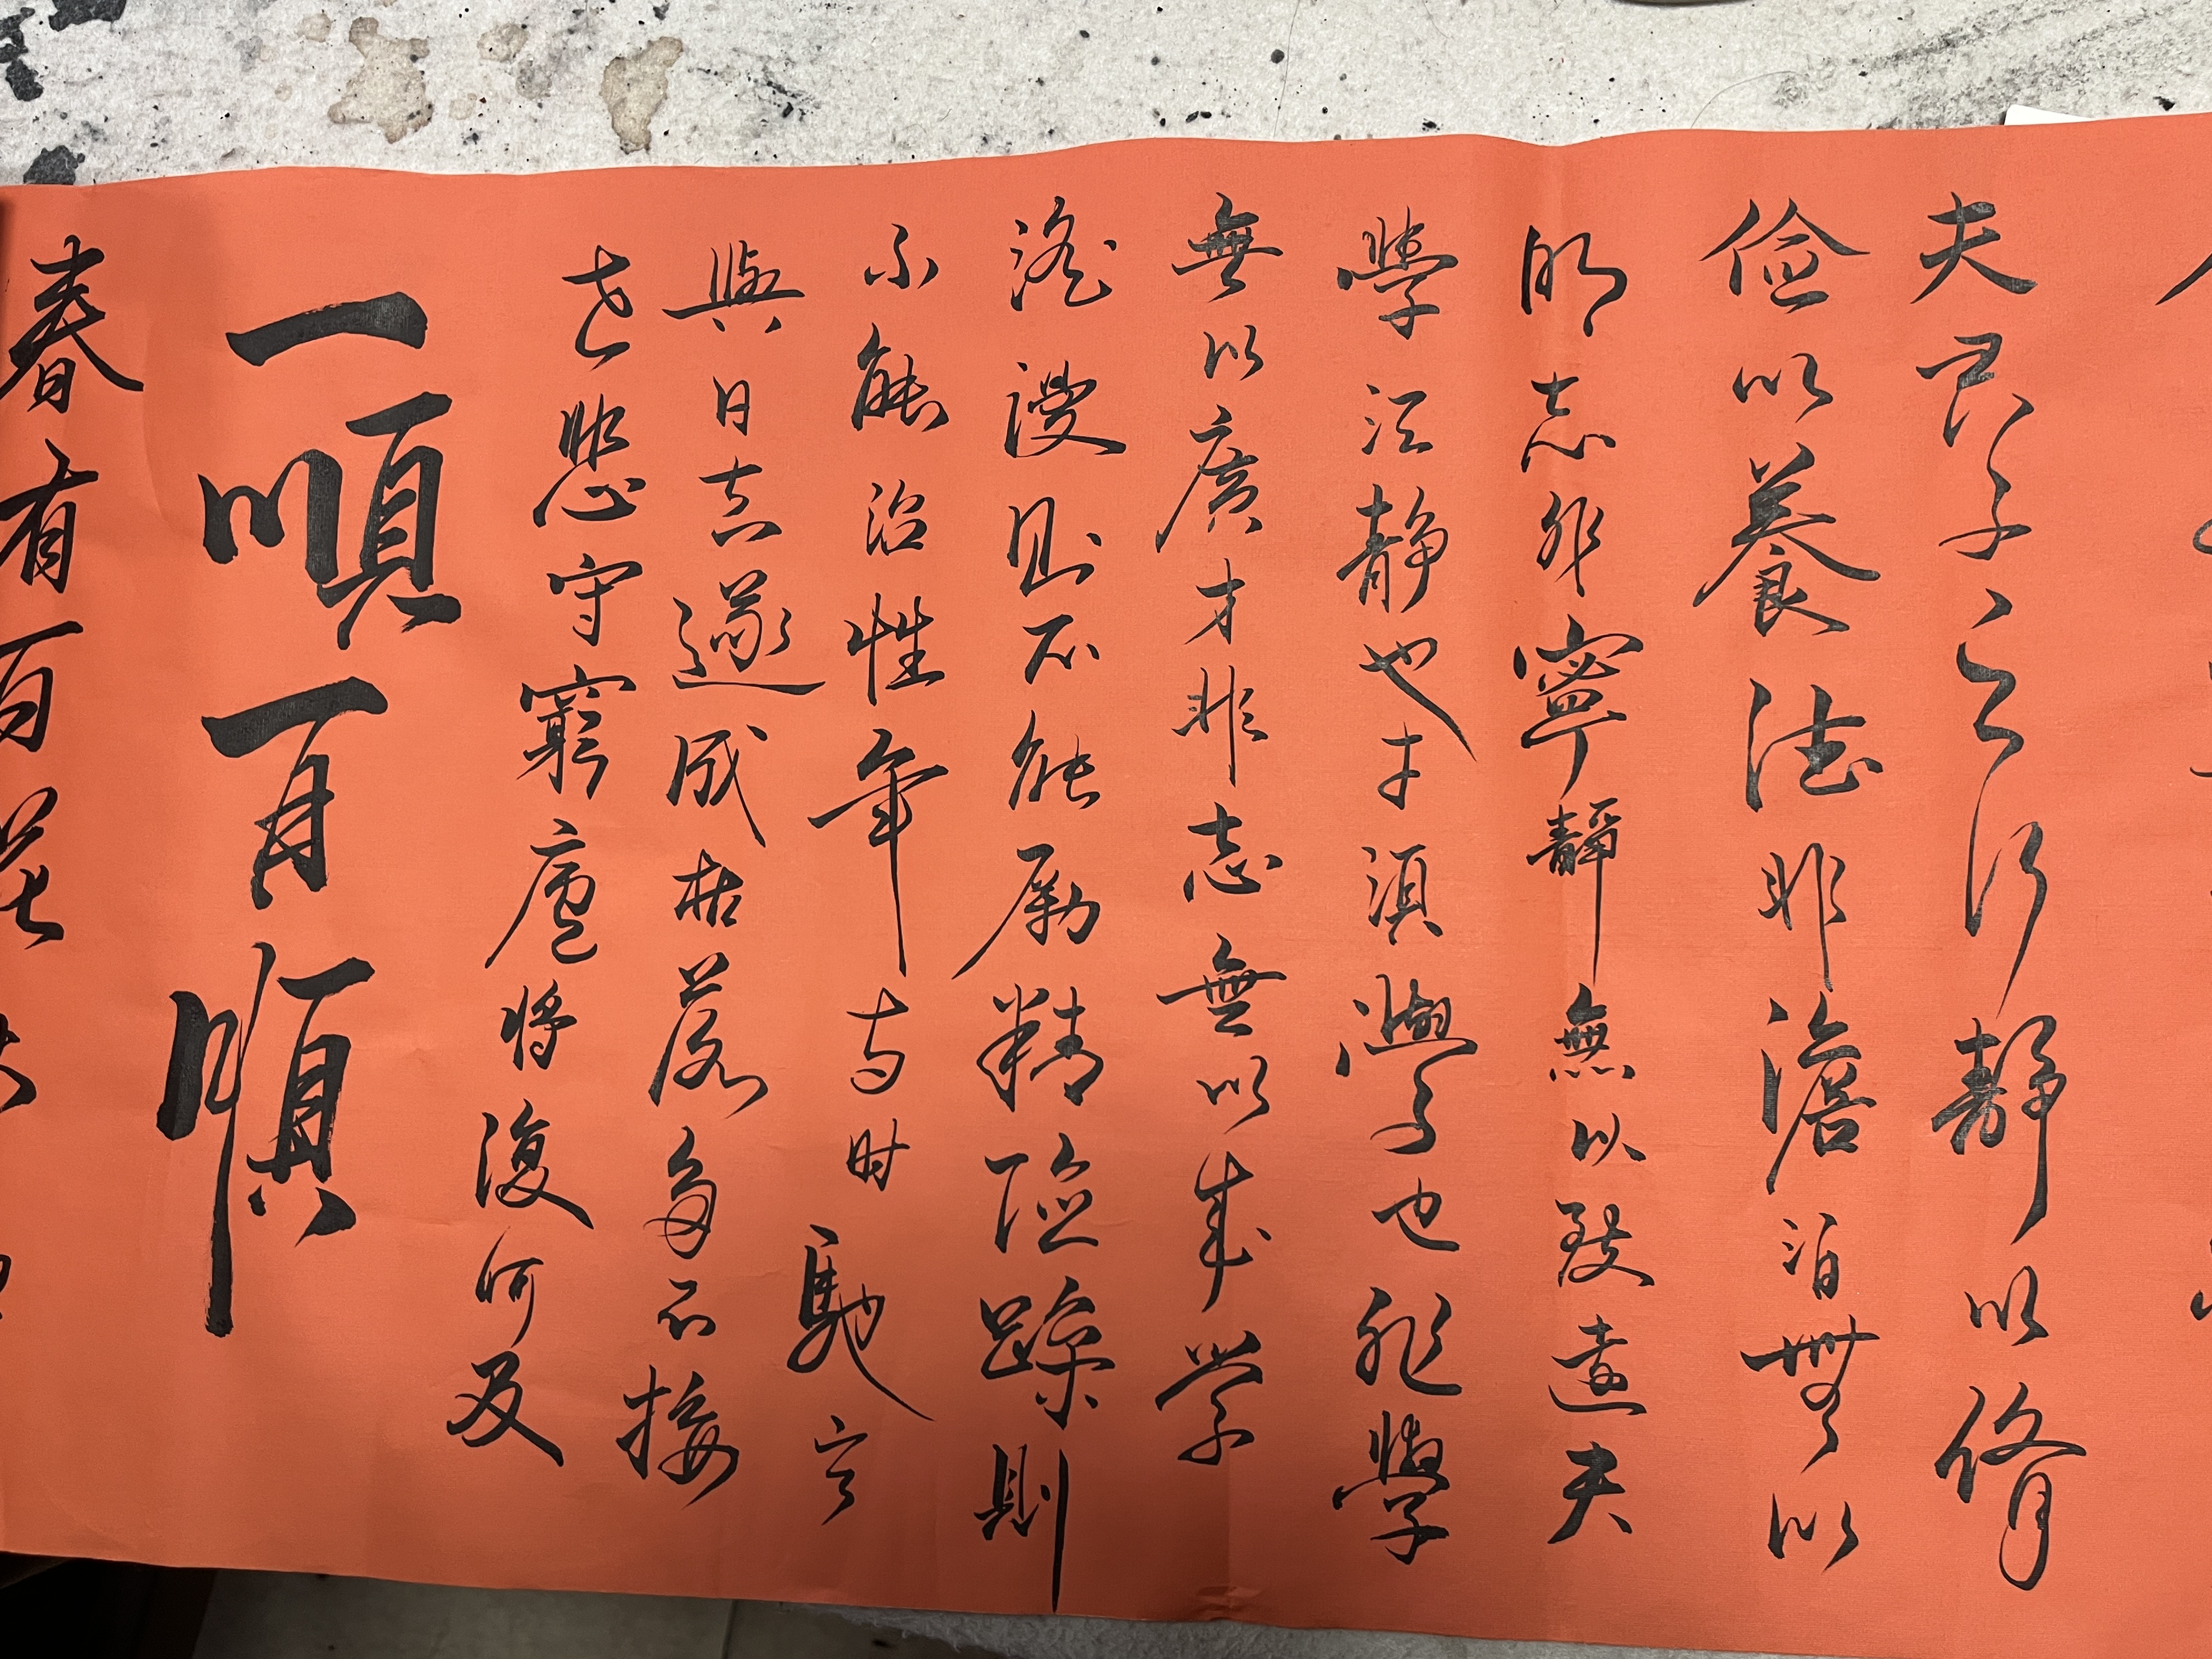 夫君子之行靜以脩
儉以養德非澹泊無以
明志非寧靜無以致遠夫
學須靜也才須學也非學
無以廣才非志無以成學
滛漫則不能励精險躁則
不能治性年与时馳意
與日去遂成枯落多不接
世悲守窮廬將復何及
一順百順
春有百花